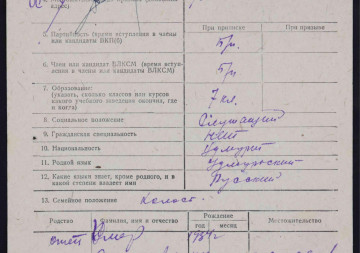 При приписке
При призыве
5. Партийность (время вступления в члены
или кандидаты ВКП(б)
б/п.
6. Член или кандидат ВЛКСМ (время вступ-
ления в члены или кандидаты ВЛКСМ)
б/п
7. Образование:
(указать, сколько классов или курсов
какого учебного заведения окончил, где
и когда)
7 кл.
8. Социальное положение
Служащий
9. Гражданская специальность
Нет
10. Национальность
Удмурт
11. Родной язык
Удмуртский
12. Какие языки знает, кроме родного, и в
какой степени владеет ими
Русский
13. Семейное положение
Холост.
Родство
Фамилия, имя и отчество
Рождение
год
месяц
Местожительство
отец